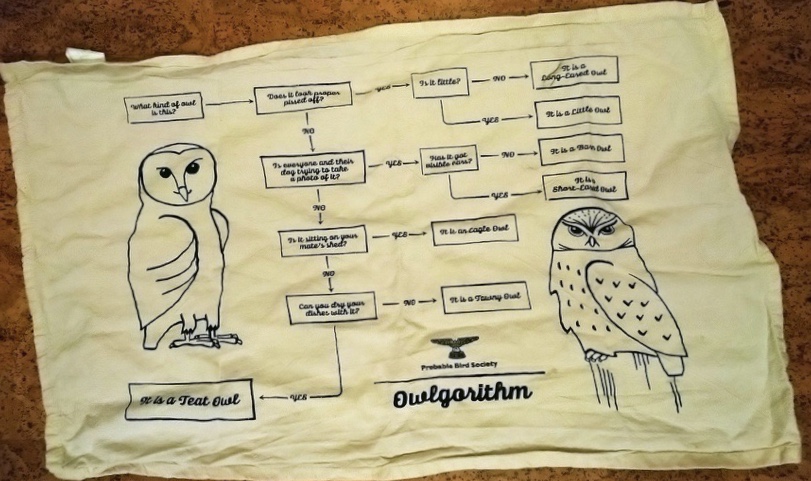 What kind of owl
is this?
Does it look proper
pissed off?
YES
Is it little?
NO
It is a
Long-Eared Owl
YES
It is a Little Owl
NO
Is everyone and their
dog trying to take
a photo of it?
YES
Has it got
visible ears?
NO
It is a Barn Owl
YES
It is a
Short-Eared Owl
NO
Is it sitting on your
mate's shed?
YES
It is an Eagle Owl
NO
Can you dry your
dishes with it?
NO
It is a Tawny Owl
YES
It is a Teat Owl
Probable Bird Society
Owlgorithm